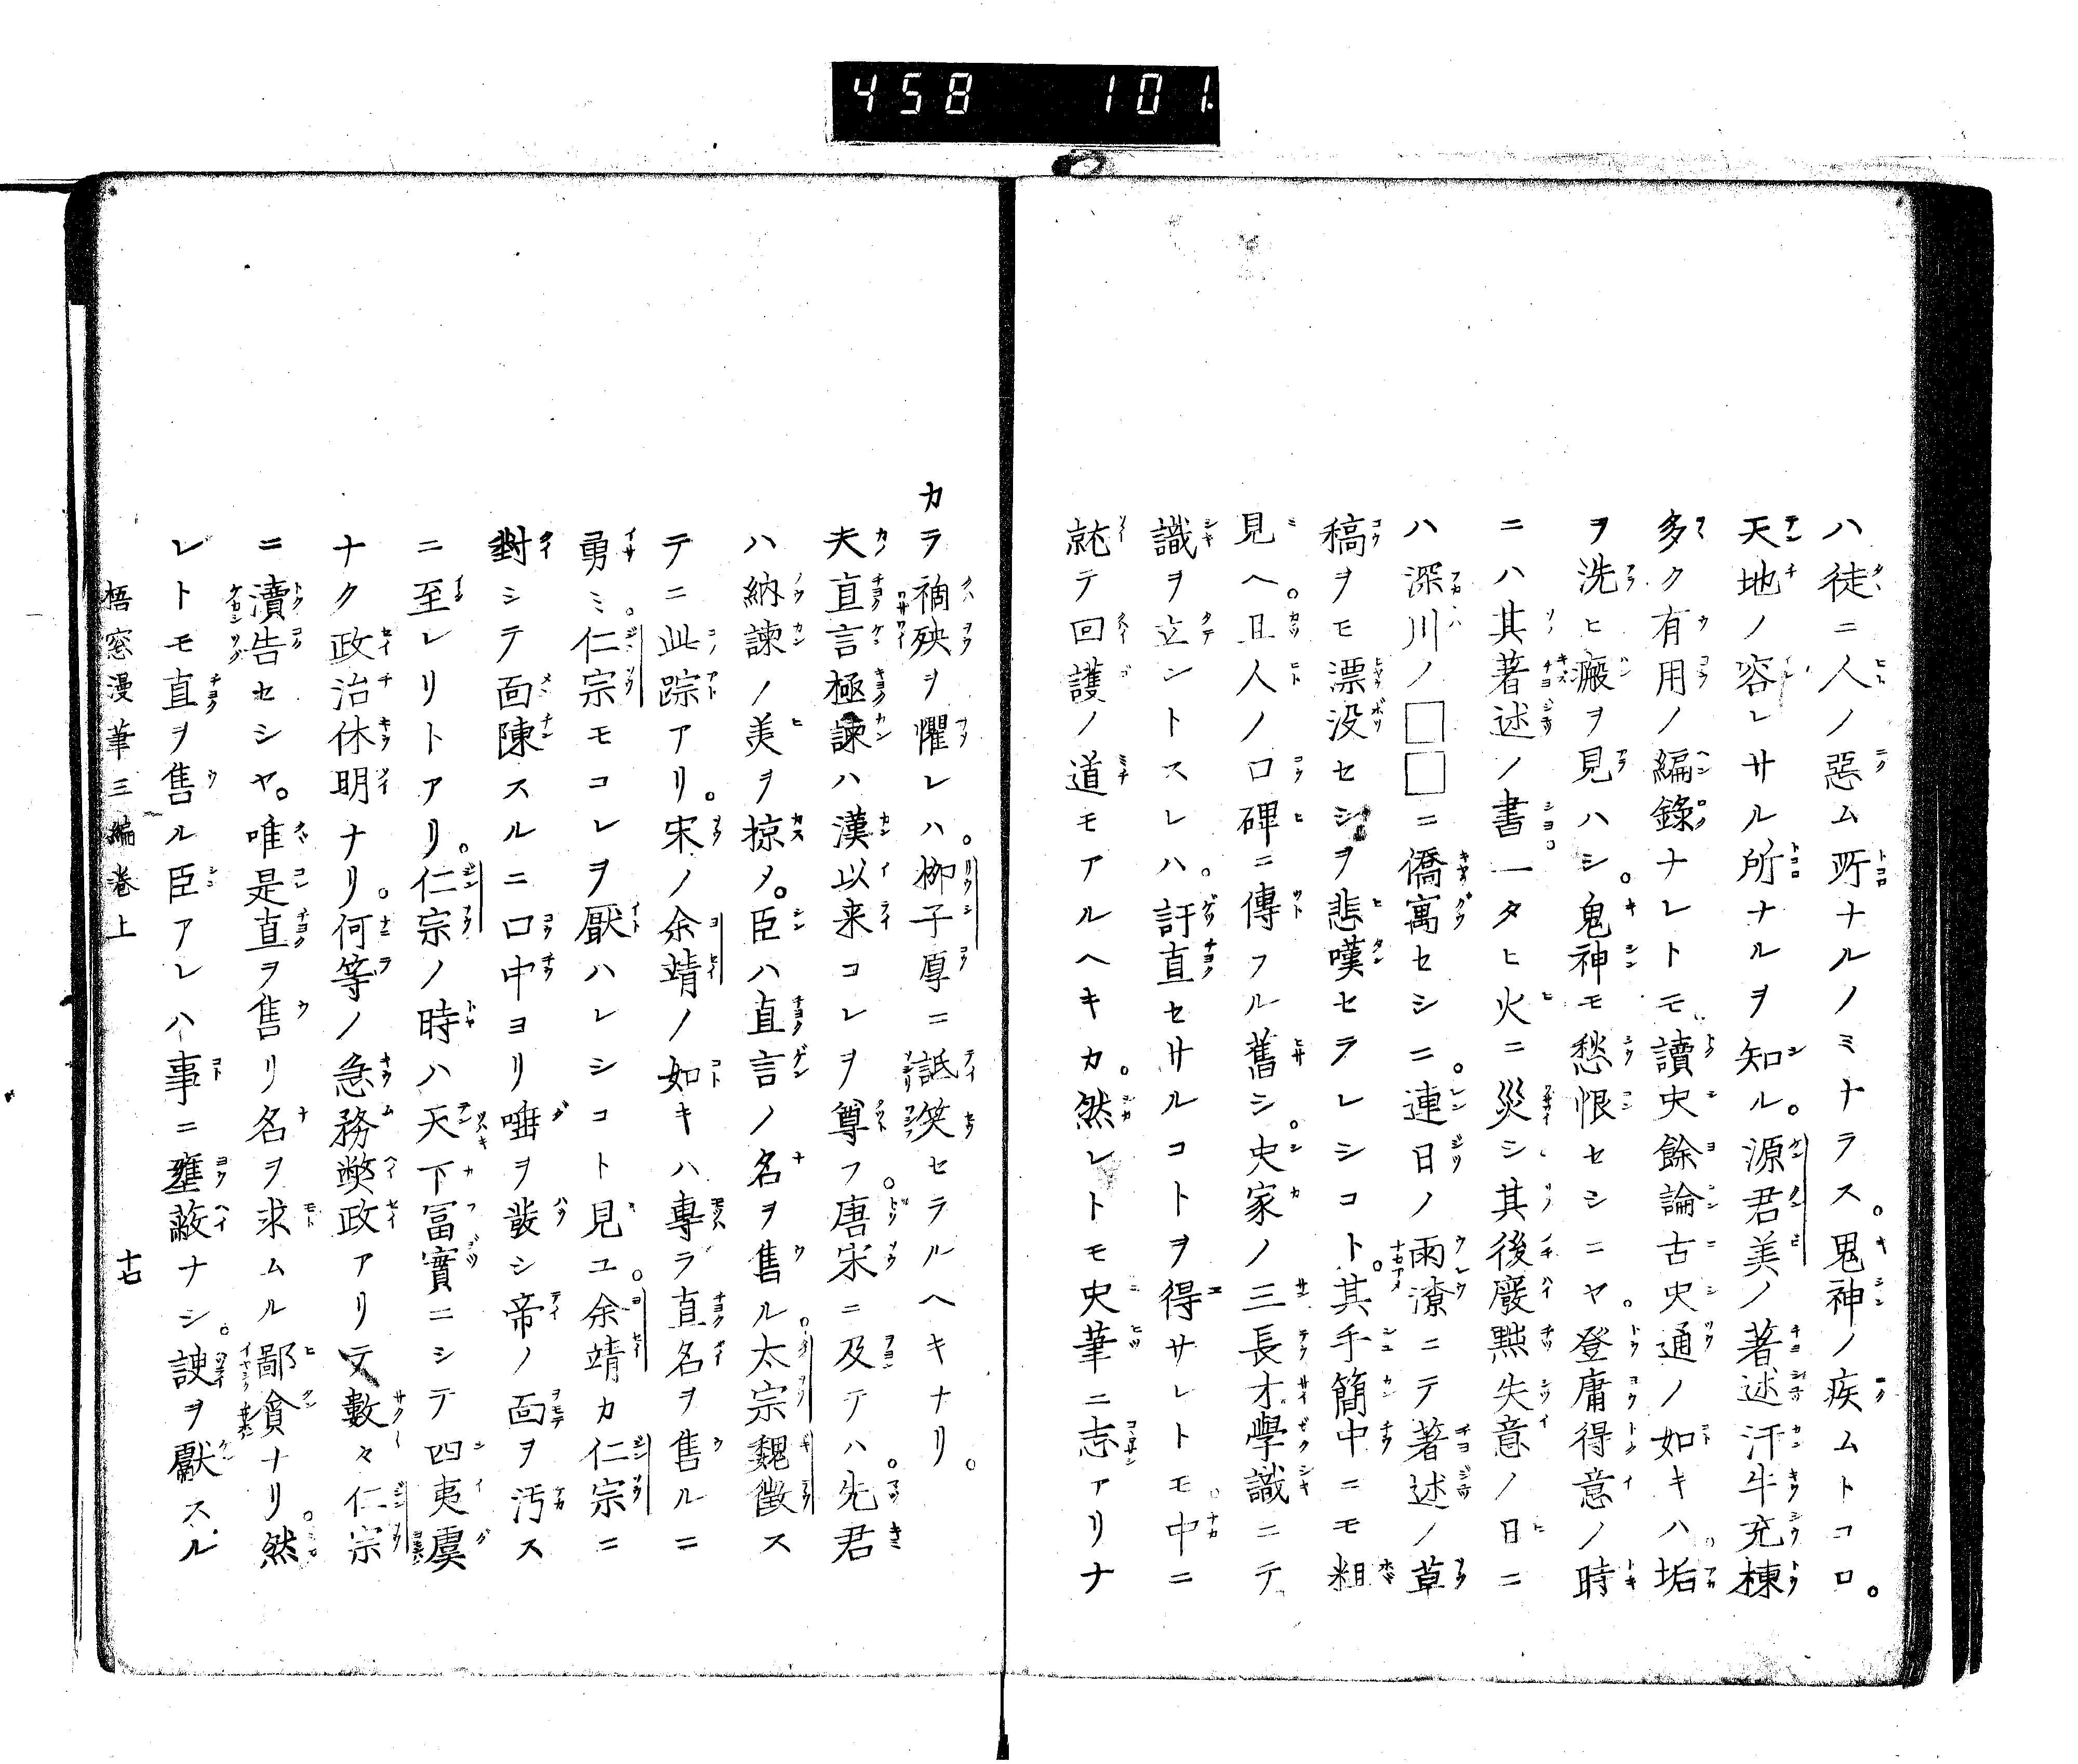 458 101
ハ徒ニ人ノ惡ム所ナルノミナラス。鬼神ノ疾ムトコロ。
天地ノ容レサル所ナルヲ知ル。源君美ノ著述汗牛充棟
多ク有用ノ編錄ナレトモ。讀史餘論古史通ノ如キハ。垢
ヲ洗ヒ瘢ヲ見ハシ。鬼神モ愁恨セシニヤ。登庸得意ノ時
ニハ其著述ノ書一タヒ火ニ災シ其後廢黜失意ノ日ニ
ハ深川ノ□□ニ僑寓セシニ。連日ノ雨潦ニテ著述ノ草
稿ヲモ漂没セシヲ悲嘆セラレシコト。其手簡中ニモ粗
見ヘ。且人ノ口碑ニ傳フル舊シ。史家ノ三長才學識ニテ
識ヲ立ントスレハ。訐直セサルコトヲ得サレトモ。中ニ
就テ回護ノ道モアルヘキカ。然レトモ史筆ニ志アリナ
カラ禍殃ヲ懼レハ。柳子厚ニ詆笑セラルヘキナリ。
夫直言極諫ハ漢以来コレヲ尊フ。唐宋ニ及テハ。先君
ハ納諫ノ美ヲ掠メ。臣ハ直言ノ名ヲ售ル。太宗魏徴ス
テニ此踪アリ。宋ノ余靖ノ如キハ專ラ直名ヲ售ルニ
勇ミ。仁宗モコレヲ厭ハレシコト見ユ。余靖カ仁宗ニ
對シテ面陳スルニ口中ヨリ唾ヲ發シ帝ノ面ヲ汚ス
ニ至レリトアリ。仁宗ノ時ハ天下冨實ニシテ四夷虞
ナク政治休明ナリ。何等ノ急務弊政アリテ數々仁宗
ニ瀆告セシヤ。唯是直ヲ售リ名ヲ求ムル鄙貪ナリ。然
レトモ直ヲ售ル臣アレハ事ニ壅蔽ナシ。諛ヲ獻スル
梧窓漫筆三編巻上 十七